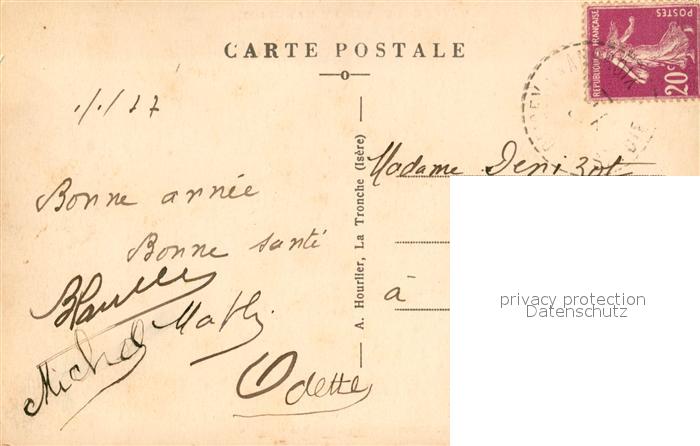 CARTE POSTALE
REPUBLIQUE FRANÇAISE
POSTES
20c
1/1/27
Bonne année
Bonne santé
Michel
Odette
A. Hourlier, La Tronche (Isère)
Madame Denizot
à
privacy protection
Datenschutz